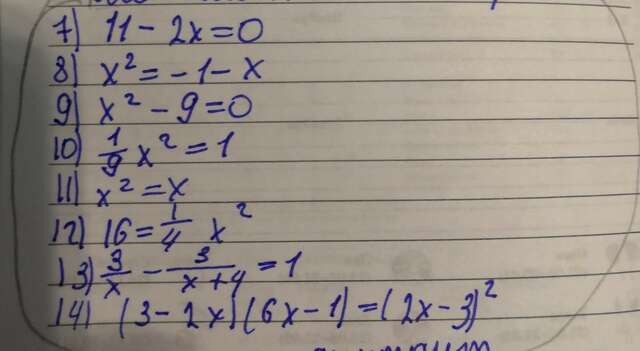 7) 11 - 2x = 0
8) x² = -1 - x
9) x² - 9 = 0
10) 1/9 x² = 1
11) x² = x
12) 16 = 1/4 x²
13) 3/x - 3/(x+4) = 1
14) (3 - 2x)(6x - 1) = (2x - 3)²